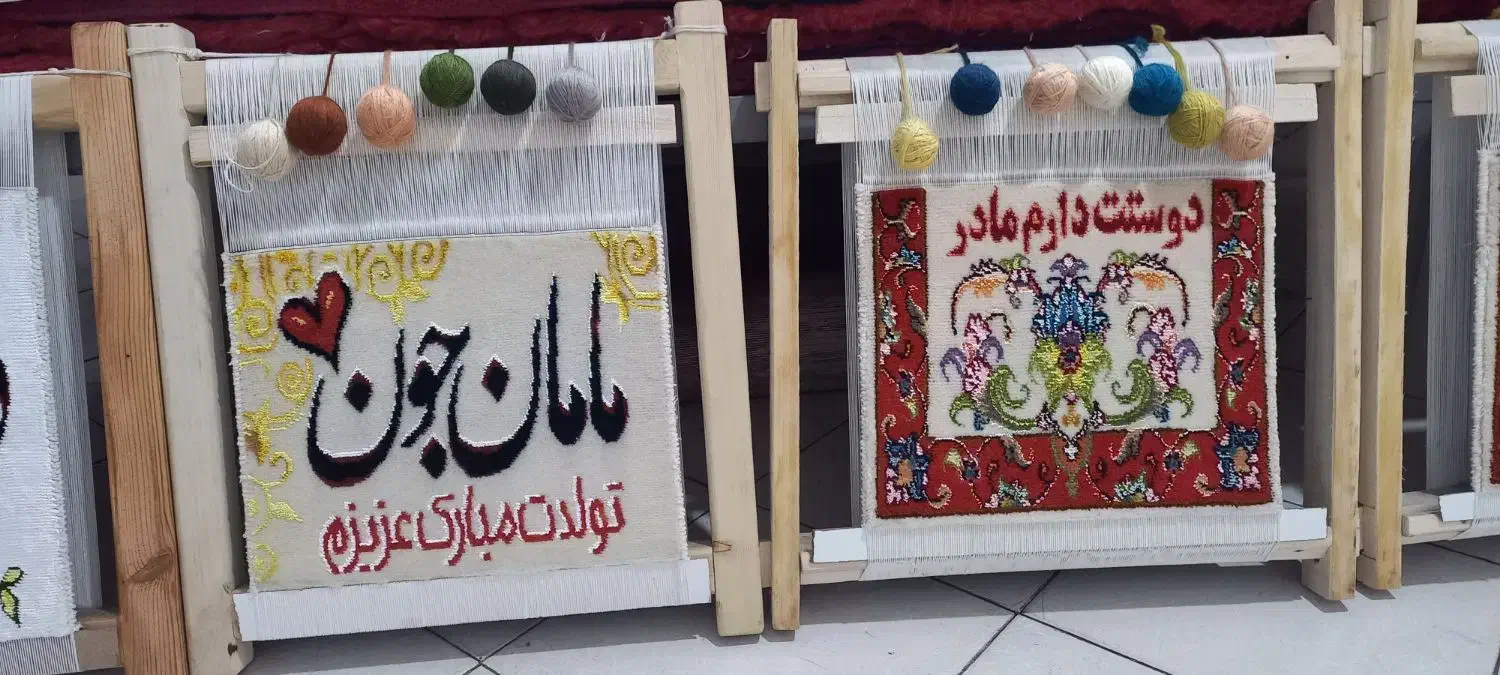 مامان جون
تولدت مبارک عزیزم
دوستت دارم مادر